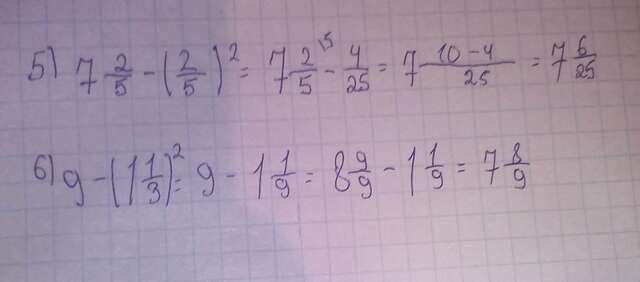 5) 7 2/5 - (2/5)² = 7 2/5 ⁵ - 4/25 = 7 10-4/25 = 7 6/25
6) 9 - (1 1/3)² = 9 - 1 1/9 = 8 9/9 - 1 1/9 = 7 8/9